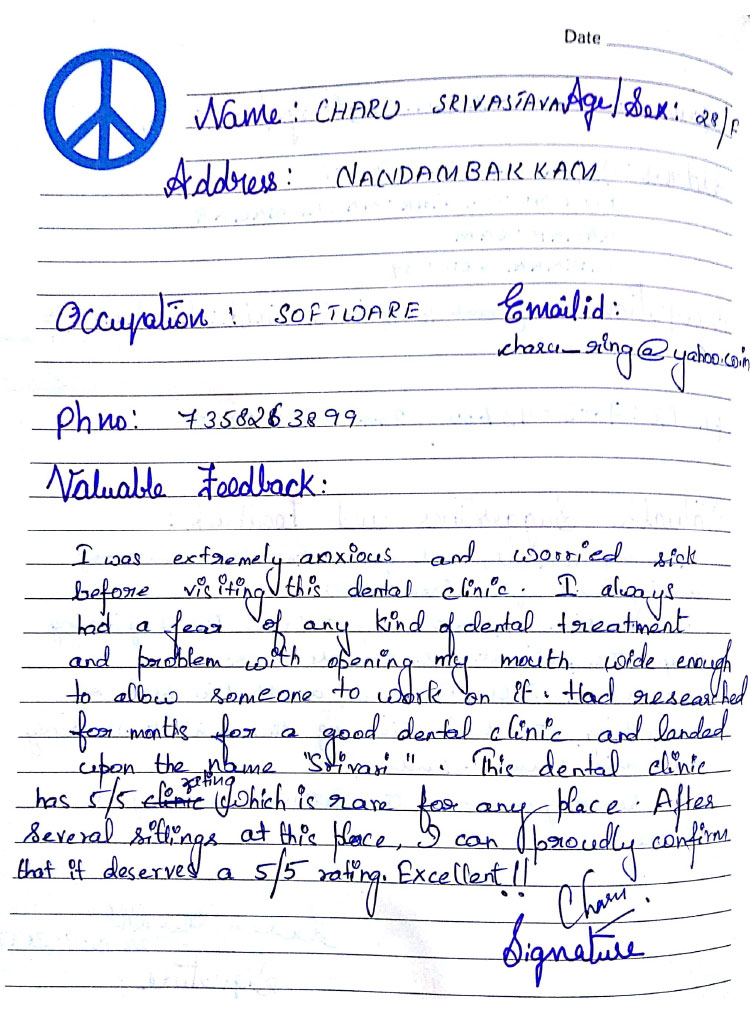 Date
Name: CHARU SRIVASTAVA Age/Sex: 28/F
Address: NANDAMBAKKAM
Occupation: SOFTWARE Email id:
charu_sring@yahoo.co.in
Ph no: 7358263899
Valuable Feedback:
I was extremely anxious and worried sick
before visiting this dental clinic. I always
had a fear of any kind of dental treatment
and problem with opening my mouth wide enough
to allow someone to work on it. Had researched
for months for a good dental clinic and landed
upon the name "Srivari". This dental clinic
has 5/5 clinic rating which is rare for any place. After
several sittings at this place, I can proudly confirm
that it deserved a 5/5 rating. Excellent!!
Charu.
Signature